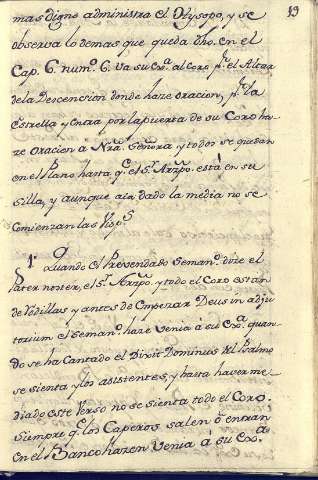 19
mas digno administra el Hysopo, y se
observa lo demas que queda dho. en el
Cap. 6. num.º 6. Va su Ex.ª al Coro p.r el Altar
de la Descencion donde haze oracion, p.r la
Estrella y entra por la puerta de su Coro ha-
ze oracion a Nrã. Señora y todos se quedan
en el Plano hasta q.e el S.r Arzpo. está en su
Silla, y aunque aia dado la media no se
Comienzan las Visp.s
1. Quando el Prevendado Seman.º dize el
Pater noster, el S.r Arzpo. y todo el Coro estan
de Rodillas y antes de Empezar Deus in adju
torium el Seman.º haze Venia á su Ex.ª quan-
do se ha Cantado el Dixit Dominus del Psalmo
se sienta y los asistentes, y hasta haver me-
diado este Verso no se sienta todo el Coro.
Siempre q.e los Caperos salen ó entran
en el Banco hazen Venia á su Ex.ª